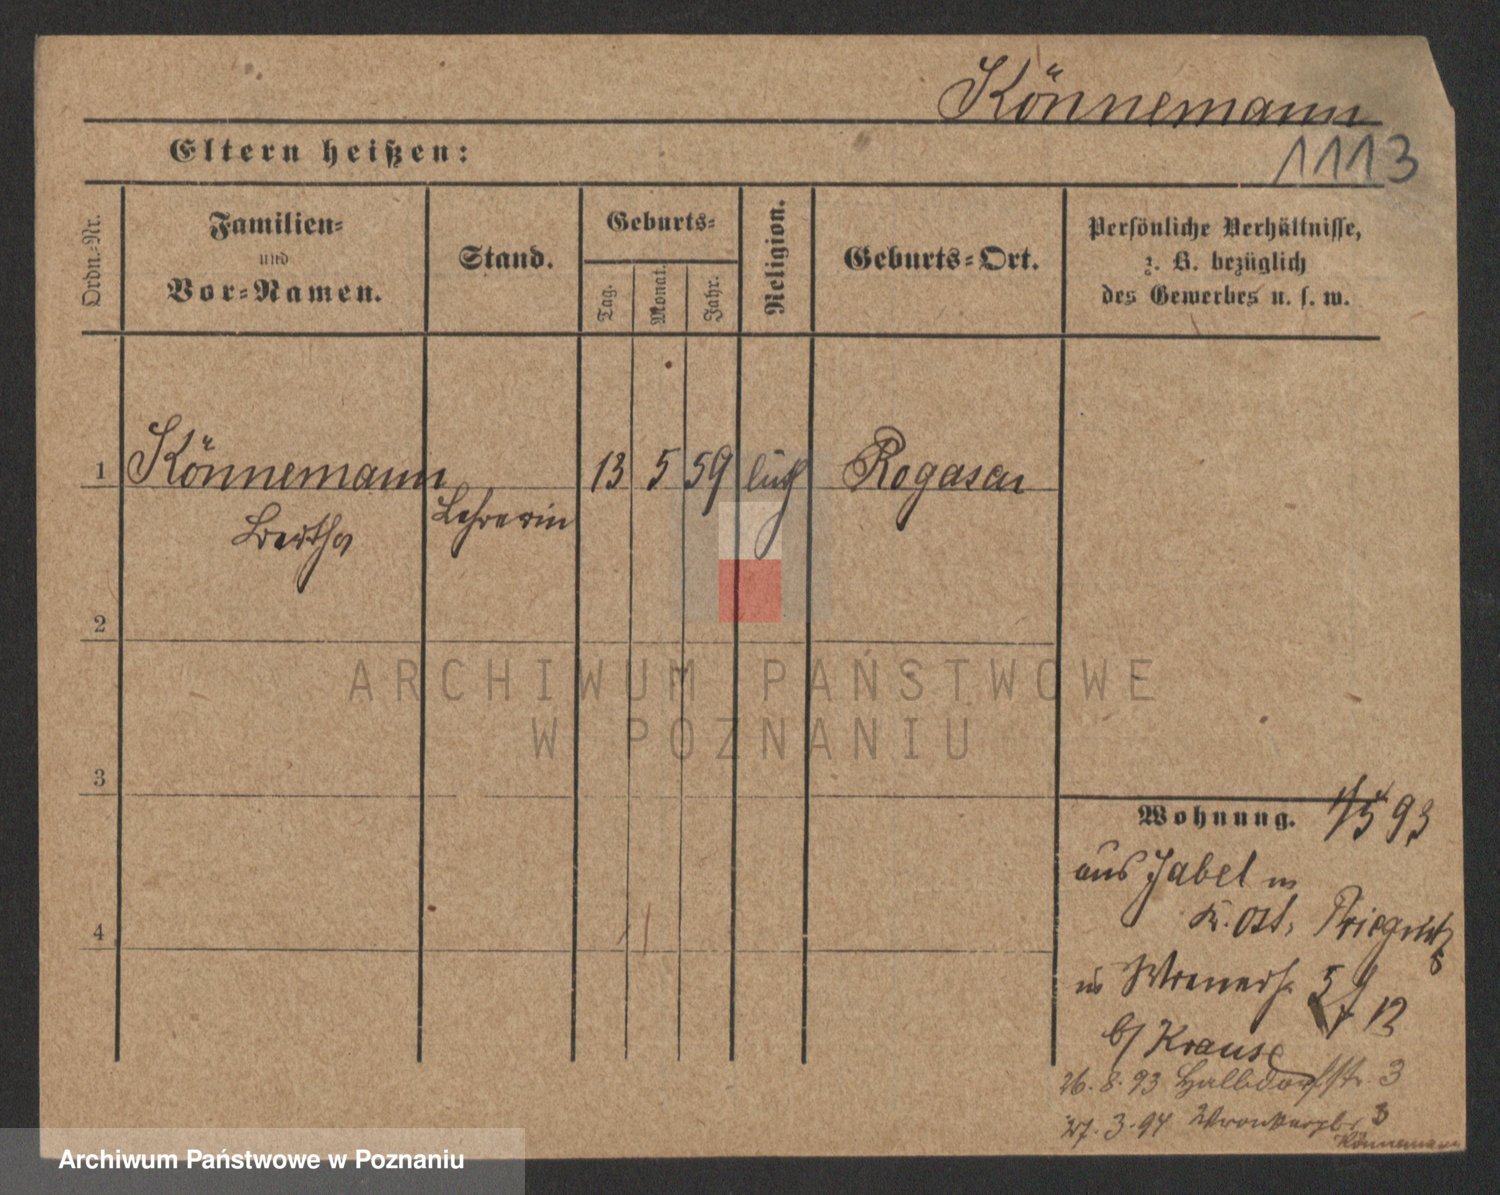 Könnemann
1113
Eltern heißen:
Ordn.-Nr.
Familien-
und
Vor-Namen.
Stand.
Geburts-
Tag.
Monat.
Jahr.
Religion.
Geburts-Ort.
Persönliche Verhältnisse,
z. B. bezüglich
des Gewerbes u. s. w.
1 Könnemann 13 5 59 luth Rogasen
Bertha Lehrerin
2
3
4
ARCHIWUM PAŃSTWOWE
W POZNANIU
Wohnung. 1/5 93
aus Jabel in
Kr. Ost, Priegnitz
in
b/ Krause
26. 8. 93 Halbdorfstr. 3
27. 3. 94 3
Könnemann
Archiwum Państwowe w Poznaniu